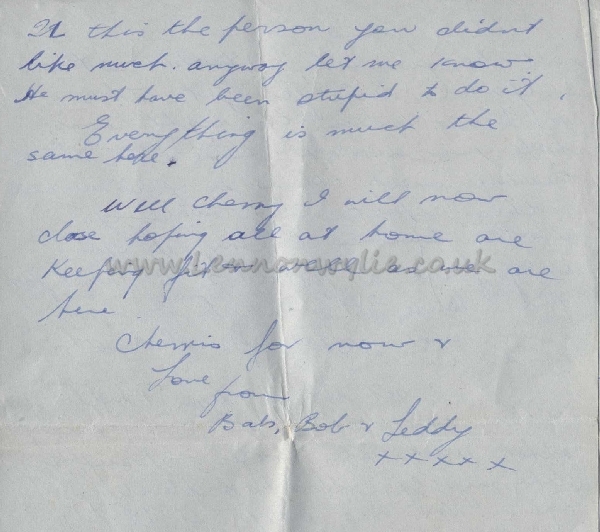 Is this the person you didnt
like much. anyway let me know
He must have been stupid to do it.
Everything is much the
same here.
Well Cherry I will now
close hoping all at home are
keeping fit & as we are
here
Cheerio for now &
Love
from
Babs, Bob & Teddy
xxxxx